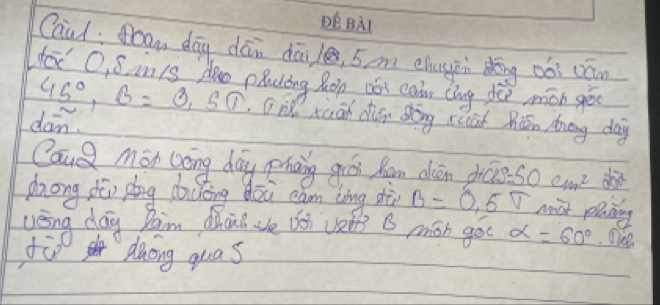 ĐỀ BÀI
Câu1: Đoạn dây dẫn dài 1,5 m chuyển động với vận
tốc 0,5 m/s theo phương hợp với cảm ứng từ một góc
45°, B = 0,5T. Tính xuất điện động xuất hiện trong dây
dẫn.
Câu2 một vòng dây phẳng giới hạn diện tích S=50 cm² đặt
trong từ trường đều cảm ứng từ B = 0,5 T mặt phẳng
vòng dây làm thành với B một góc α = 60°. Tính
từ thông qua S